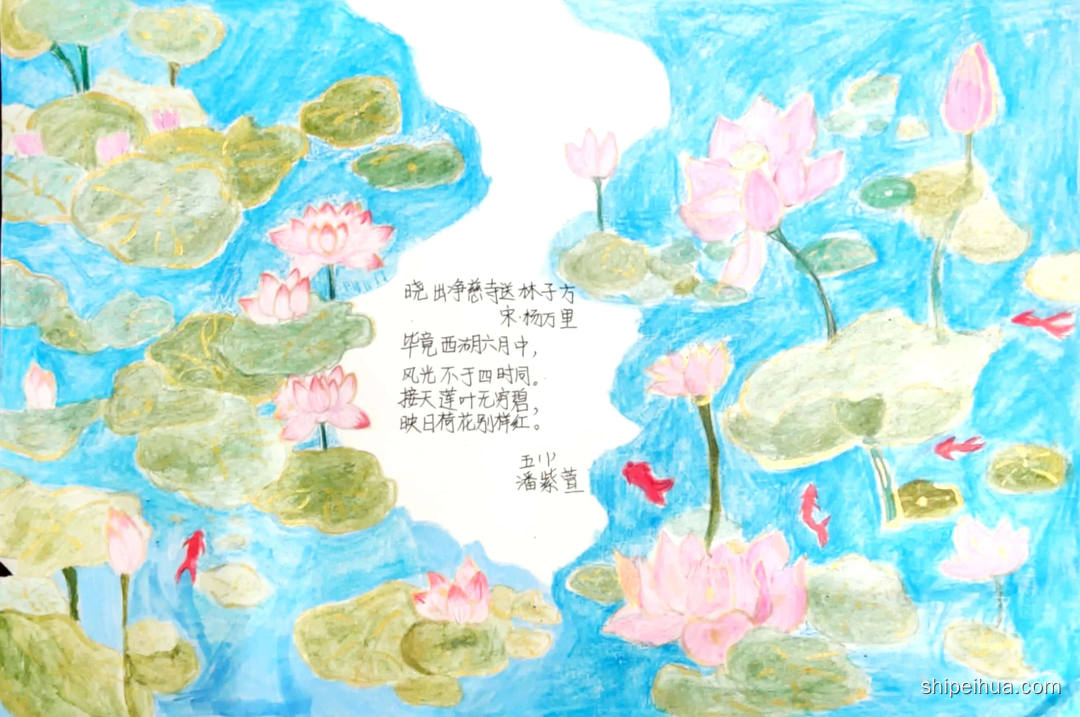 晓出净慈寺送林子方
宋·杨万里
毕竟西湖六月中，
风光不于四时同。
接天莲叶无穷碧，
映日荷花别样红。
五小
潘紫萱
shipeihua.com